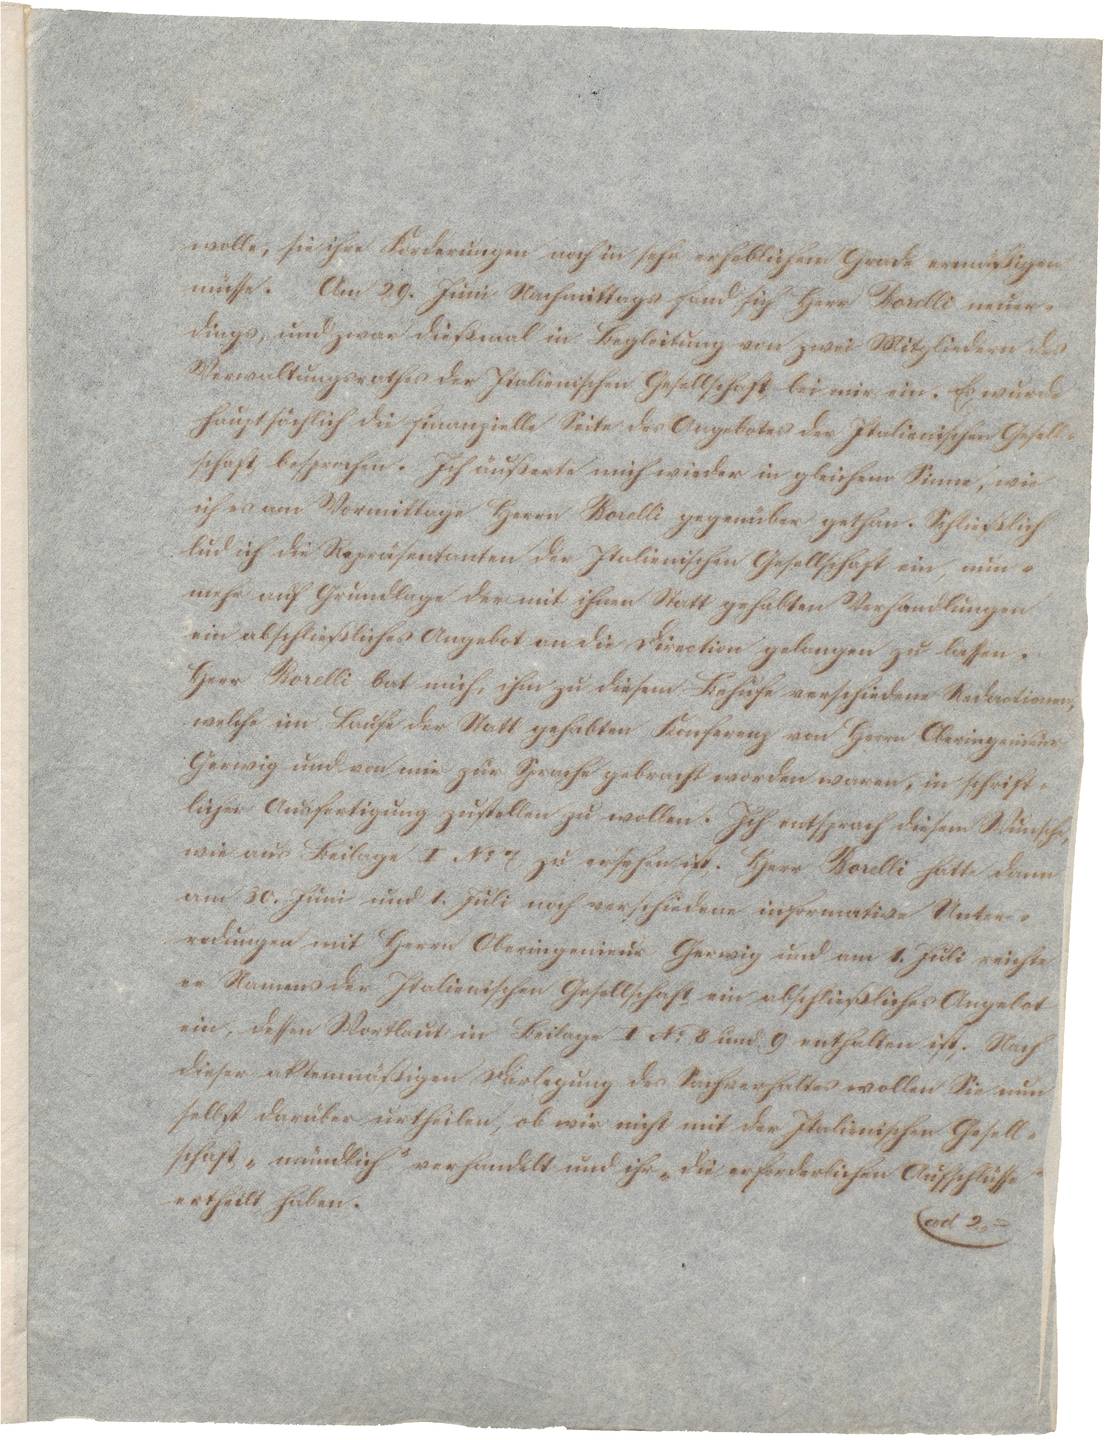 wolle, sie ihre Forderungen noch in sehr erheblichem Grade ermäßigen
müsse. Am 29. Juni Nachmittags fand sich Herr Borelli neuer-
dings, und zwar dießmal in Begleitung von zwei Mitgliedern des
Verwaltungsrathes der Italienischen Gesellschaft bei mir ein. Es wurde
hauptsächlich die finanzielle Seite des Angebotes der Italienischen Gesell-
schaft besprochen. Ich äußerte mich wieder in gleichem Sinne, wie
ich es am Vormittage Herrn Borelli gegenüber gethan. Schließlich
lud ich die Repräsentanten der Italienischen Gesellschaft ein, nun-
mehr auf Grundlage der mit ihnen Statt gehabten Verhandlungen
ein abschließliches Angebot an die Direction gelangen zu lassen.
Herr Borelli bat mich, ihm zu diesem Behufe verschiedene Redactionen,
welche im Laufe der Statt gehabten Konferenz von Herrn Oberingenieur
Gerwig und von mir zur Sprache gebracht worden waren, in schrift-
licher Ausfertigung zustellen zu wollen. Ich entsprach diesem Wunsche,
wie aus Beilage I No 7 zu ersehen ist. Herr Borelli hatte dann
am 30. Juni und 1. Juli noch verschiedene informative Unter-
redungen mit Herrn Oberingenieur Gerwig und am 1. Juli reichte
er Namens der Italienischen Gesellschaft ein abschließliches Angebot
ein, dessen Wortlaut in Beilage I No 8 und 9 enthalten ist. Nach
dieser aktenmäßigen Darlegung des Sachverhaltes wollen Sie nun
selbst darüber urtheilen, ob wir nicht mit der Italienischen Gesell-
schaft „mündlich“ verhandelt und ihr „die erforderlichen Aufschlüsse“
ertheilt haben.
ad 2.